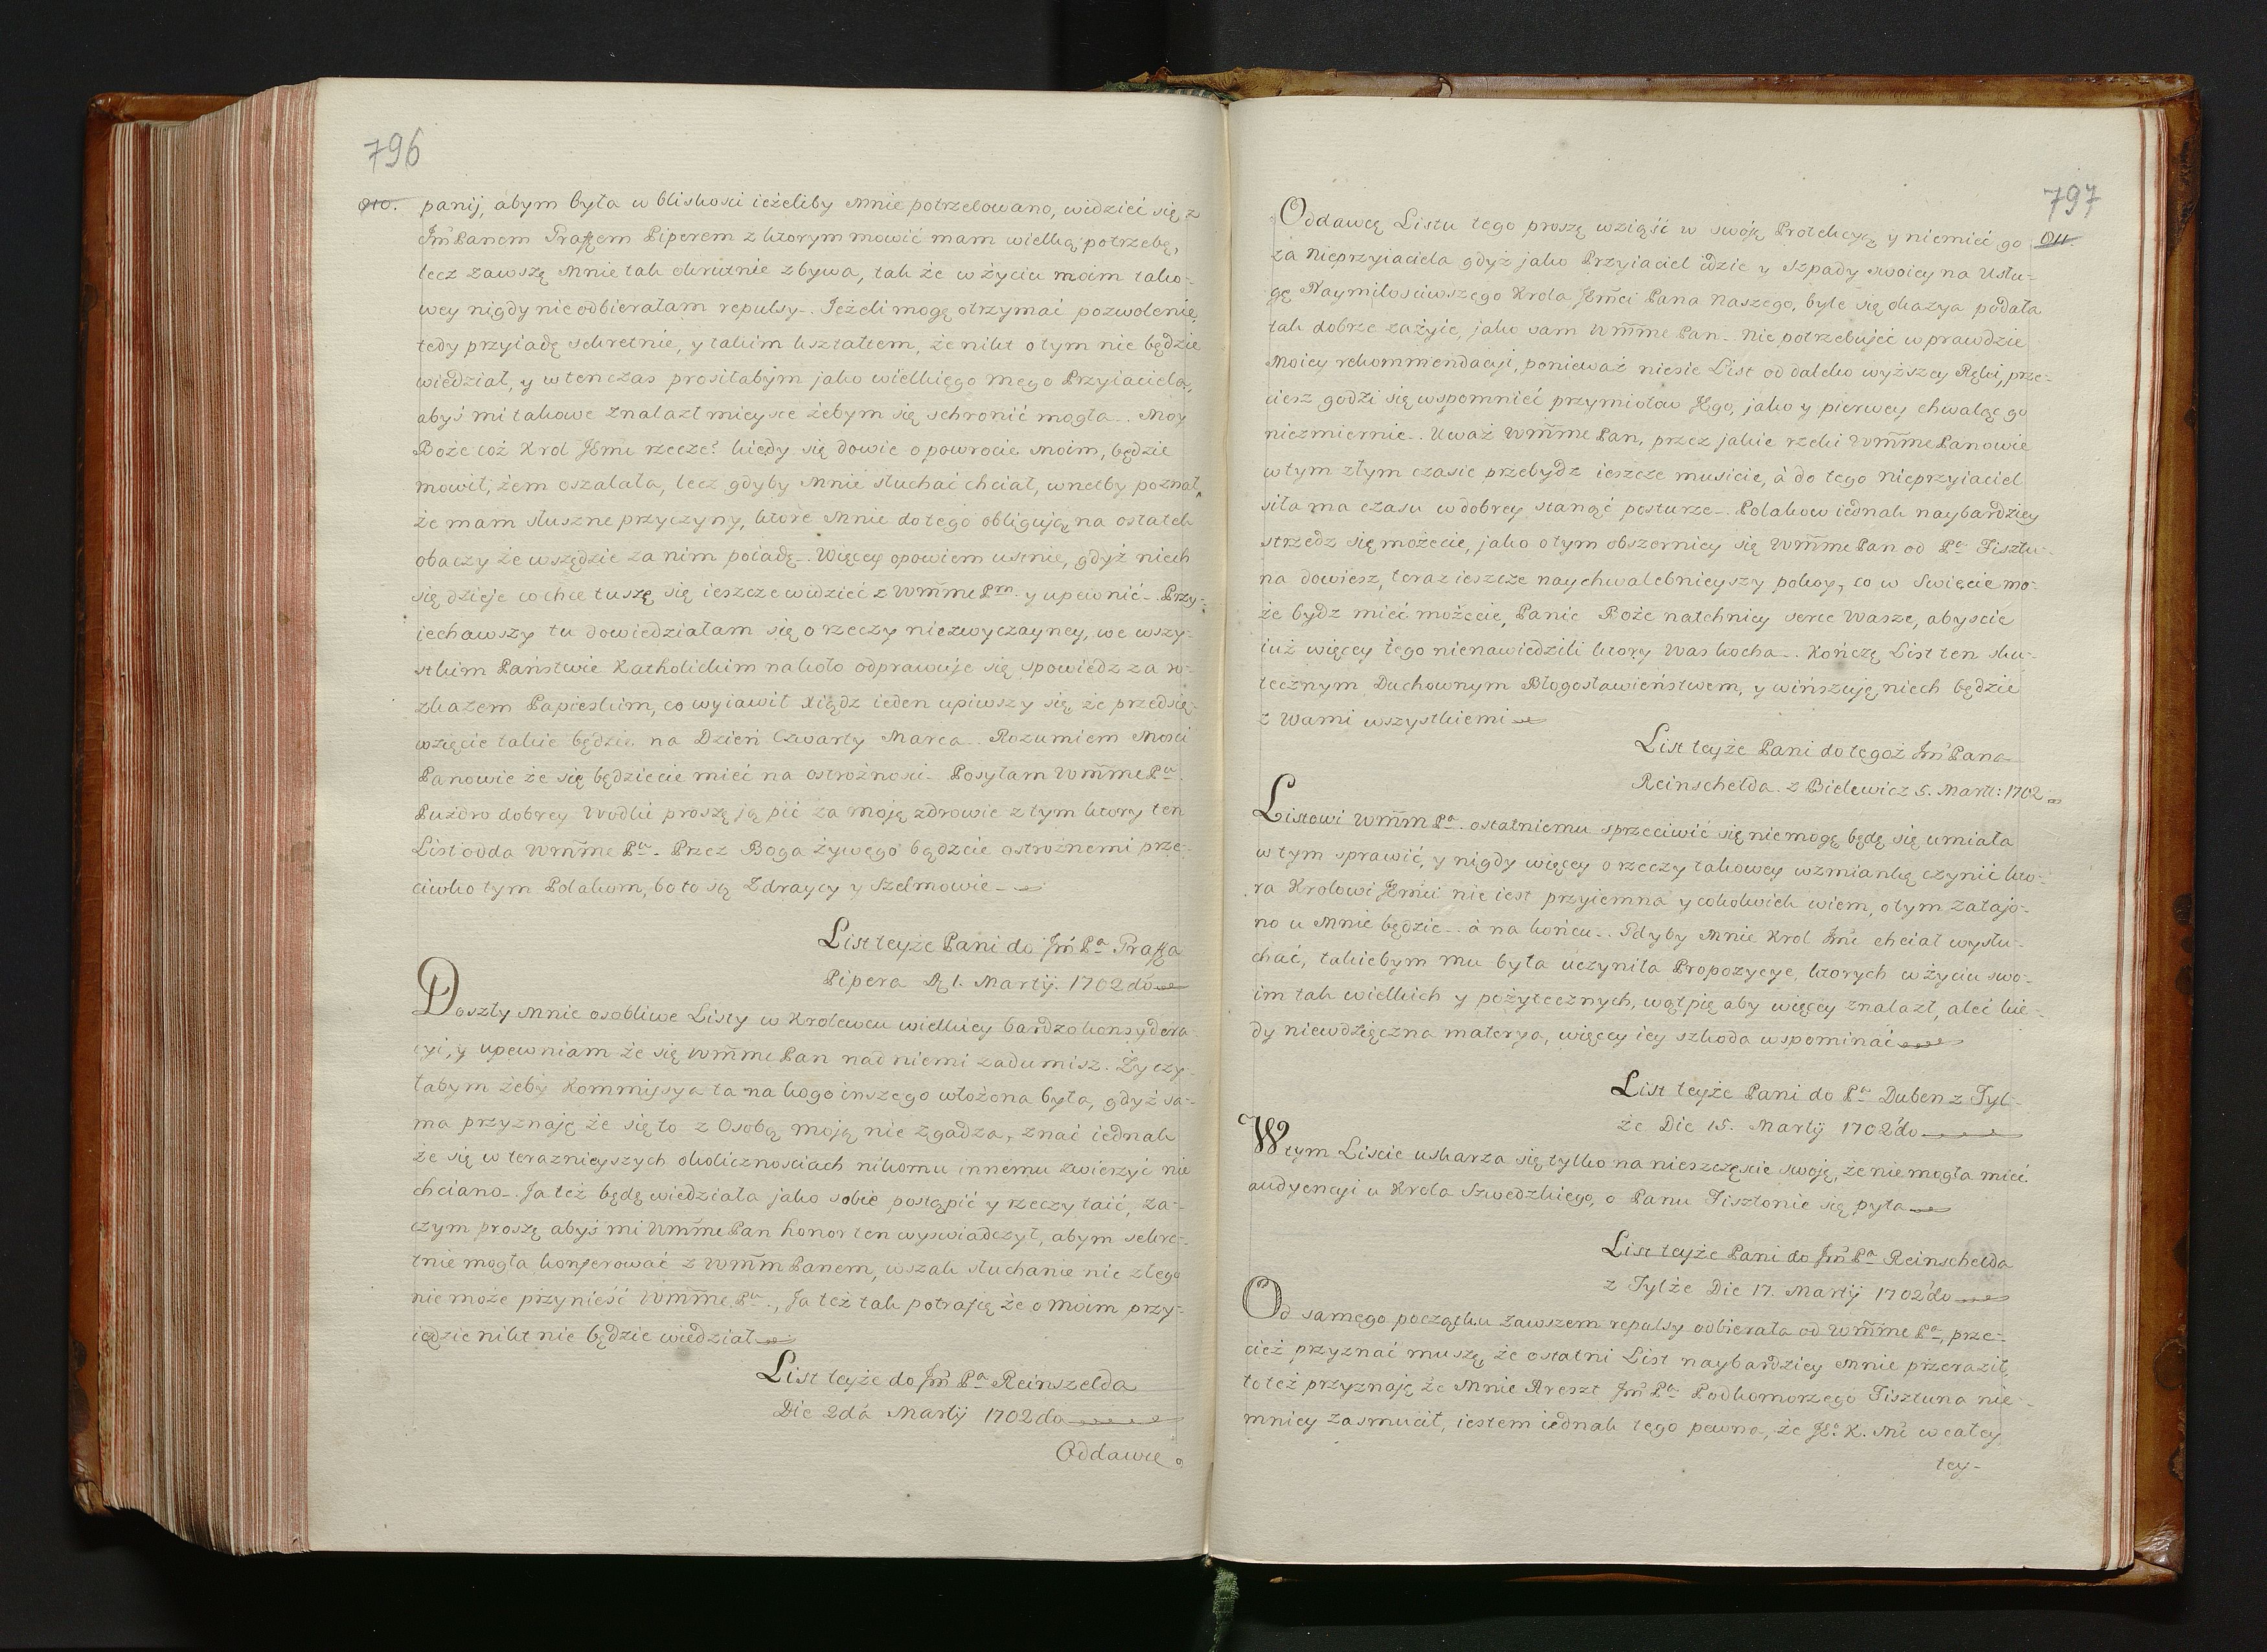 796
panij, abym była w bliskosci ieżeliby mnie potrzebowano, widzieć się z
Jm̃ Panem Graffem Piperem z ktorym mowić mam wielką potrzebę,
lecz zawszę mnie tak okrutnie zbywa, tak że w życiu moim tako-
wey nigdy nie odbierałam repulsy. Ieżeli mogę otrzymać pozwolenie,
tedy przyiadę sekretnie, y takim kształtem, że nikt o tym nie będzie
wiedział, y wtenczas prosiłabym jako wielkiego mego Przyiaciela,
abyś mi takowe znalazł mieysce żebym się schronić mogła. Moy
Boże coż Krol JEm̃ rzecze? kiedy się dowie o powrocie moim, będzie
mowił, żem oszalała, lecz gdyby mnie słuchać chciał, wnetby poznał,
że mam słuszne przyczyny, ktore mnie do tego obligują, na ostatek
obaczy że wszędzie za nim poiadę. Więcey opowiem ustnie, gdyż niech
się dzieje co chce tuszę się ieszcze widzieć z Wm̃me Pm. y upewnić. Przy-
iechawszy tu dowiedziałam się o rzeczy niezwyczayney, we wszy-
stkim Państwie Katholickim nakoło odprawuje się spowiedz za ro-
zkazem Papieskim, co wyiawił xiądz ieden upiwszy się że przedsię-
wzięcie takie będzie na Dzień Czwarty Marca. Rozumiem Mosci
Panowie że się będziecie mieć na ostrożnosci. Posyłam Wm̃me Pu.
Puzdro dobrey Wodki proszę ją pić za moję zdrowie z tym ktory ten
List odda Wm̃me Pu. Przez Boga żywego bądzcie ostrożnemi prze-
ciwko tym Polakom, bo to są Zdraycy y Szelmowie.
List teyże Pani do Jm̃ Pa Graffa
Pipera D. 1. Martij. 1702do
Doszły mnie osobliwe Listy w Krolewcu wielkiey bardzo konsydera
cyi, y upewniam że się Wm̃me Pan nad niemi zadumisz. Życzy-
łabym żeby Kommissya ta na kogo inszego włożona była, gdyż sa-
ma przyznaję że się to z Osobą moją nie zgadza, znać iednak
że się w teraznieyszych okolicznosciach nikomu innemu zwierzyć nie
chciano. Ja też będę wiedziała jako sobie postąpić y rzeczy taić, za-
czym proszę abyś mi Wm̃me Pan honor ten wyswiadczył, abym sekre-
tnie mogła konferować z Wm̃m Panem, wszak słuchanie nic złego
nie może przynieść Wm̃me Pu., Ja też tak potrafię że o moim przy-
ieździe nikt nie będzie wiedział
List teyże do Jm̃ Pa Reinszelda
Die 2dá Martij 1702do
Oddawcę
797
Oddawcę Listu tego proszę wziąść w swoję Protekcyą y niemieć go
za nieprzyiaciela gdyż jako Przyiaciel idzie y Szpady swoiey na Usłu-
gę Naymiłosciwszego Krola JEm̃ci Pana Naszego, byle się okazya podała
tak dobrze zażyie, jako sam Wm̃me Pan. Nie potrzebujeć wprawdzie
moiey rekommendacyi, ponieważ niesie List od daleko wyższey Ręki, prze-
ciesz godzi się wspomnieć przymiotow Jego, jako y pierwey chwalę go
niezmiernie. Uważ Wm̃me Pan, przez jakie rzeki Wm̃me Panowie
w tym złym czasie przebydz ieszcze musicie, à do tego nieprzyiaciel
siła ma czasu w dobrey stanąć posturze. Polakow iednak naybardziey
strzedz się możecie, jako o tym obszerniey się Wm̃me Pan od Pa Fisztu-
na dowiesz, teraz ieszcze naychwalebnieyszy pokoy, co w Swięcie mo-
że bydz mieć możecie, Panie Boże natchniey serce Wasze, abyscie
iuż więcey tego nienawiedzili ktory Was kocha. Kończę List ten sku-
tecznym Duchownym Błogosławieństwem, y winszuję niech będzie
z Wami wszystkiemi
List teyże Pani do tegoż Jm̃ Pana
Reinschelda z Bielewicz 5. Marti: 1702
Listowi Wm̃m Pa. ostatniemu sprzeciwić się niemogę będę się umiała
w tym sprawić, y nigdy więcey o rzeczy takowey wzmianką czynić kto-
ra Krolowi JEm̃ci nie iest przyiemna y cokolwiek wiem, o tym zatajo-
no u mnie będzie. à na końcu. Gdyby mnie Krol Jm̃c chciał wysłu-
chać, takiebym mu była uczyniła Propozycye, ktorych w życiu swo-
im tak wielkich y pożytecznych, wątpię aby więcey znalazł, aleć kie-
dy niewdzięczna materya, więcey iey szkoda wspominać
List teyże Pani do Pa Duben z Tyl-
że Die 15. Martij 1702do
W tym Liscie uskarza się tylko na nieszczęscie swoję, że nie mogła mieć
audyencyi u Krola Szwedzkiego, o Panu Fisztonie się pyta
List teyże Pani do Jm̃ Pa Reinschelda
z Tylże Die 17. Martij 1702do
Od samego początku zawszem repulsy odbierała od Wm̃me Pa, prze-
cież przyznać muszę że ostatni List naybardziey mnie przeraził,
to też przyznaję że mnie Areszt Jm̃ Pa Podkomorzego Fisztuna nie-
mniey zasmucił, iestem iednak tego pewna, że JE. K. Mć w całey
tey-